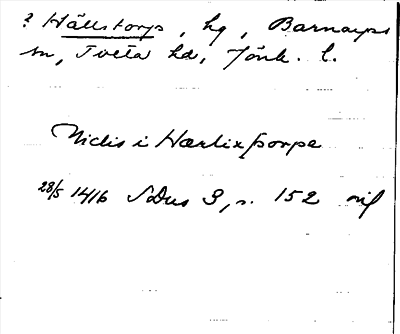 ? Hällstorps, hg, Barnarps
sn, Tveta hd, Jönk. l.
Niclis i Hærlixþorpe
28/5 1416 SDns 3, s. 152